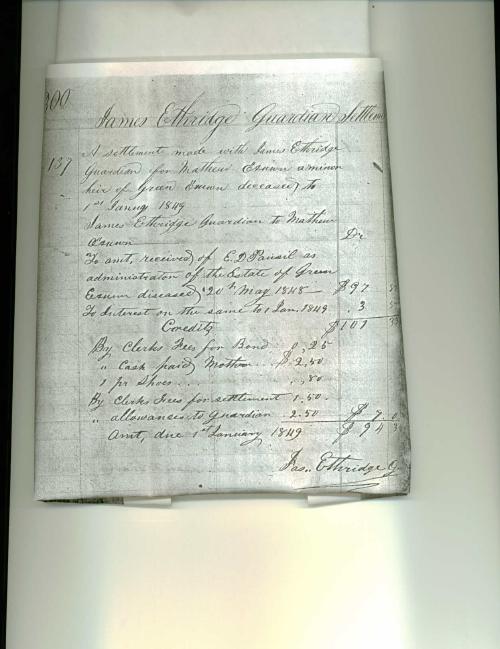 300
James Ethridge Guardian Settlem
137
A settlement made with James Ethridge
Guardian for Mathew Exum a minor
heir of Green Exum deceased to
1st Janury 1849
James Ethridge Guardian to Mathew
Exum Dr
To amt, received of E. D. as
administrator of the Estate of Green
Exum diseased, 20th May 1848 $97
To Interest on the same to 1 Jan. 1849 . 3
Credits $101
By Clerks Fees for Bond 0,25
" Cash paid Mother .. $2,50
1 pr Shoes .. .,80
By Clerks Fees for settlement 1.50.
" allowances to Guardian 2.50 $7.
Amt, due 1st January 1849 $94
Jas.. Ethridge G